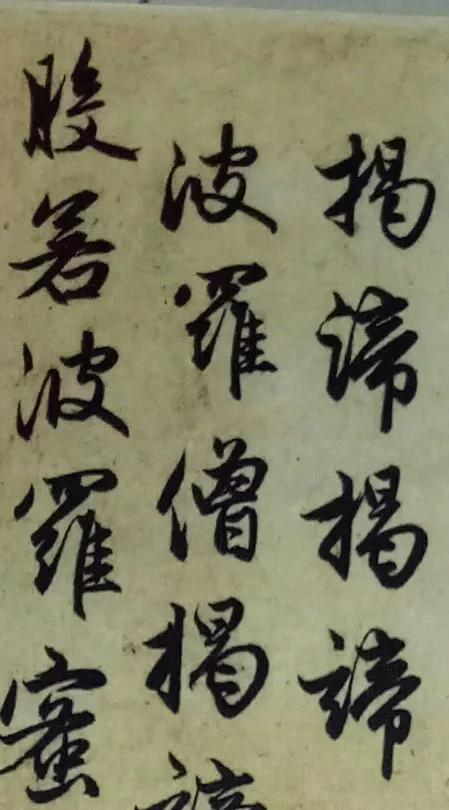 揭諦揭諦
波羅僧揭諦
般若波羅蜜